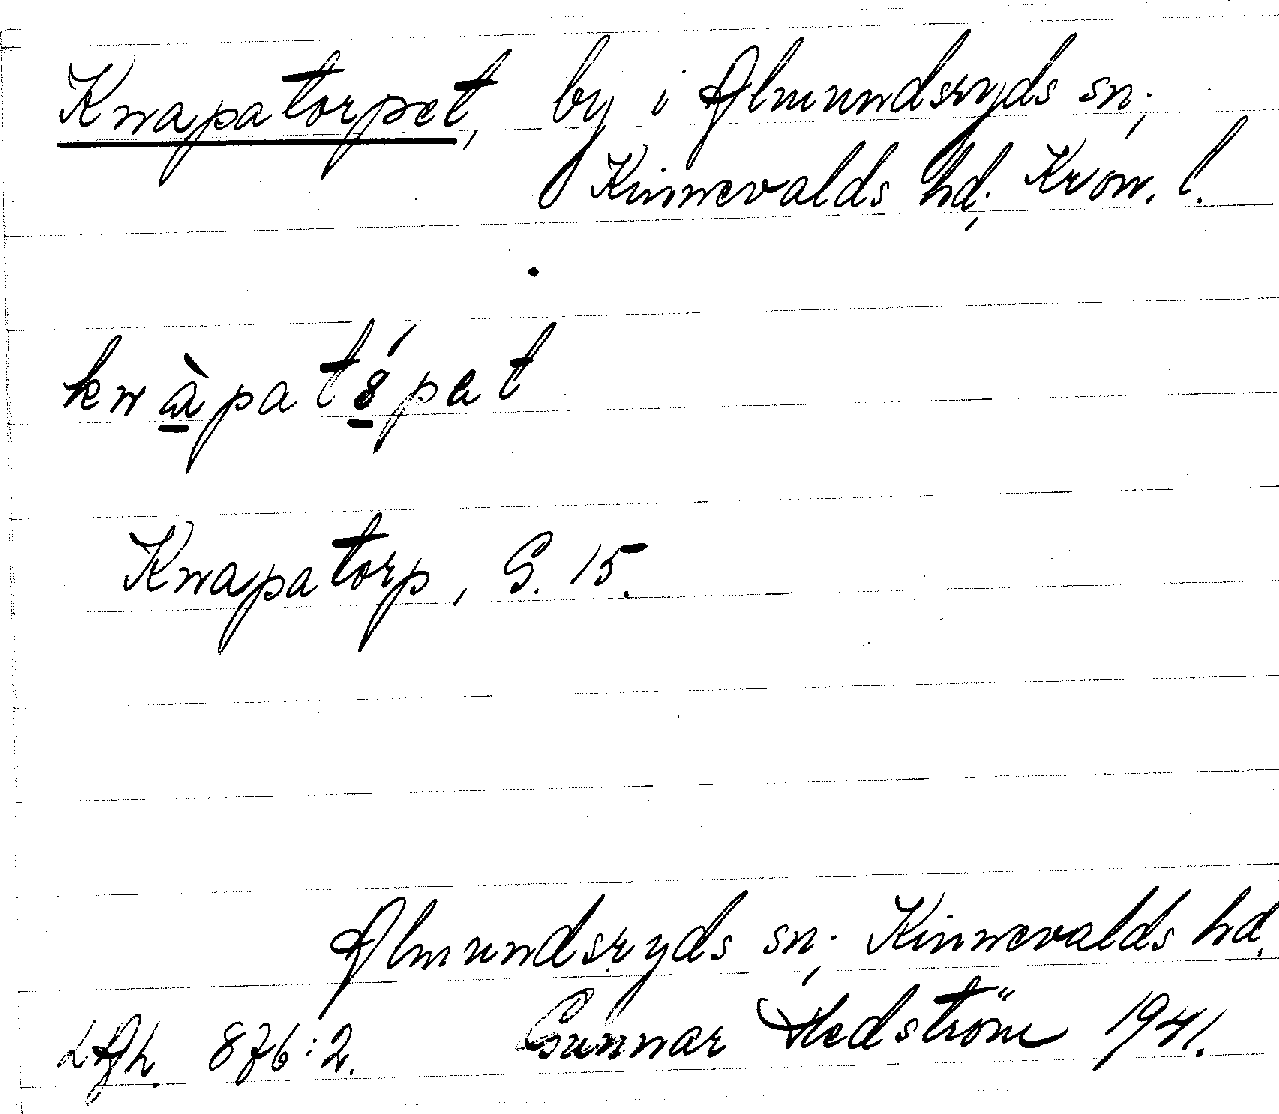 Knapatorpet, by i Almundsryds sn,
Kinnevalds hd, Kron. l.
knàpatȣ́pat
Knapatorp, G. 15.
Almundsryds sn, Kinnevalds hd.
876:2. Gunnar Hedström 1941.